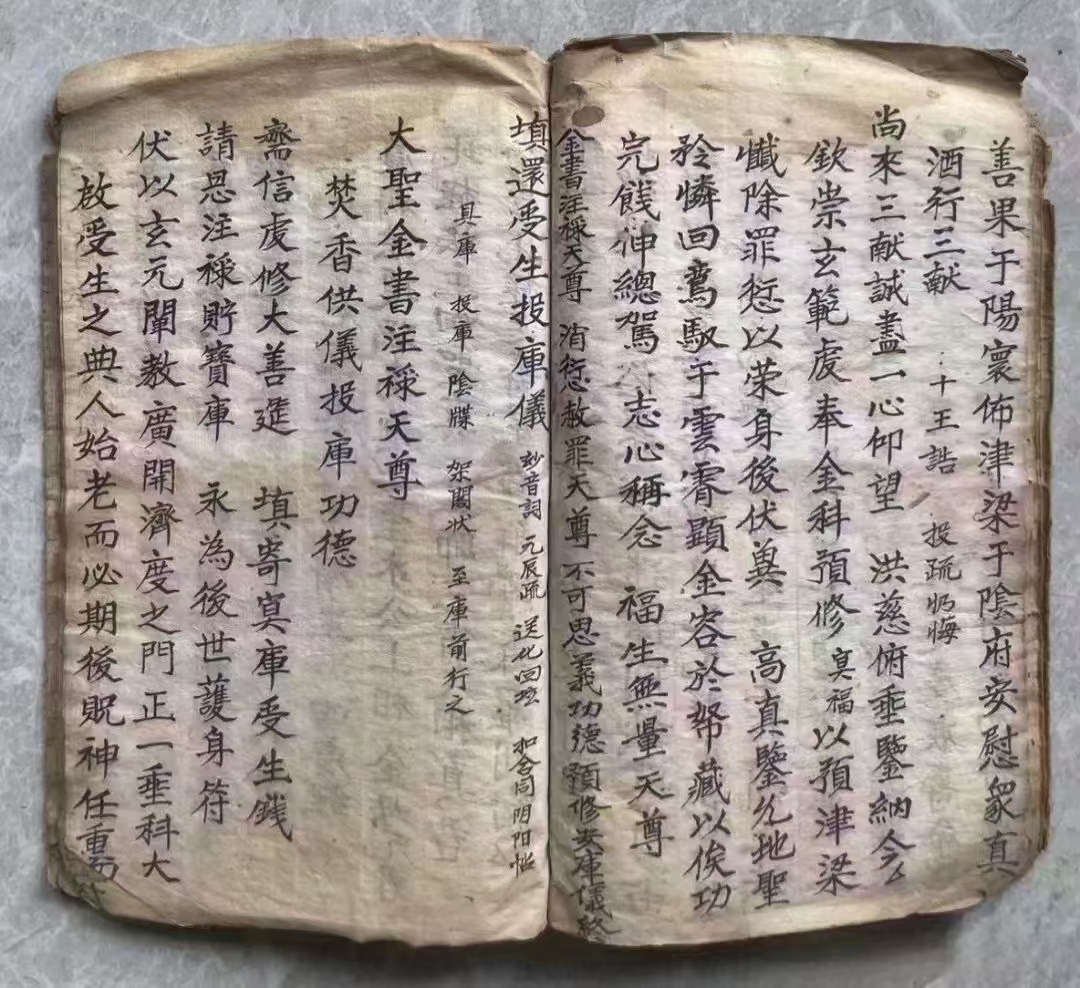 善果于陽寰佈津梁于陰府安慰眾真
酒行三献 十王誥 投疏忏悔
尚來三献誠盡一心仰望 洪慈俯垂鑒納今
欽崇玄範虔奉金科預修冥福以預津梁
懺除罪愆以荣身後伏兾 高真鑒允地聖
矜憐回鸞馭于雲霄顯金容於帑藏以俟功
完餞神總駕 志心稱念 福生無量天尊
金書注禄天尊 消愆赦罪天尊 不可思義功德預修安庫儀終
填還受生投庫儀 妙音詞 元辰疏 送化回坛 扣合同阴阳
具庫 投庫 陰牒 架閣状 至庫前行之
大聖金書注禄天尊
焚香供儀投庫功德
齋信虔修大善進 填寄冥庫受生錢
請恩注禄貯寳庫 永為後世護身符
伏以玄元闡教廣開濟度之門正一垂科大
啟受生之典人始老而必期後貺神任重